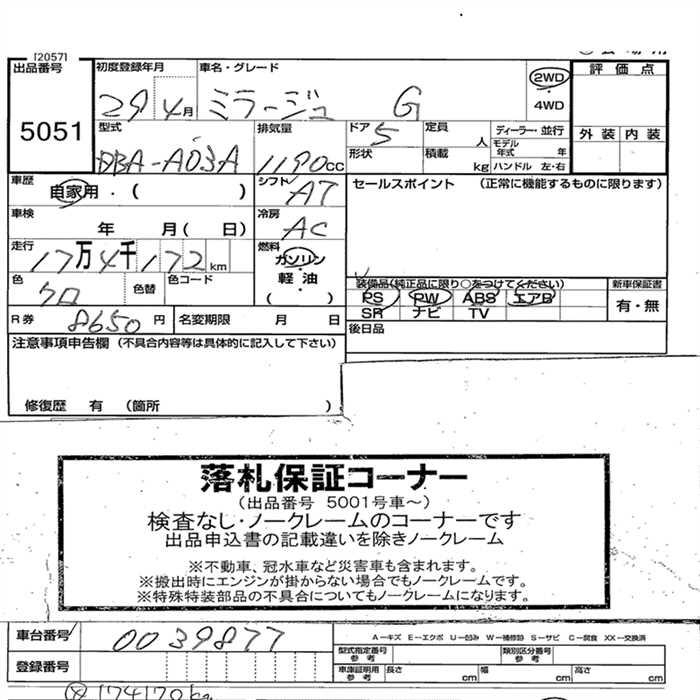 [2057]
出品番号 初度登録年月 車名・グレード 2WD 評価点
29 4月 ミラージュ G 4WD
5051 型式 排気量 ドア 5 定員 人 ディーラー・並行 外装 内装
モデル年式 年
DBA-A03A 1190cc 形状 積載 kg ハンドル 左・右
車歴 自家用・( ) シフト AT セールスポイント (正常に機能するものに限ります)
車検 年 月( 日) 冷房 AC
走行 17万4千172km 燃料 ガソリン・軽油 ( )
色 クロ 色替 色コード 装備品(純正品に限り○をつけてください) 新車保証書
PS PW ABS エアB 有・無
R券 8650円 名変期限 月 日 SR ナビ TV
後日品
注意事項申告欄 (不具合内容等は具体的に記入して下さい)
修復歴 有 (箇所 )
落札保証コーナー
(出品番号 5001号車~)
検査なし・ノークレームのコーナーです
出品申込書の記載違いを除きノークレーム
※不動車、冠水車など災害車も含まれます。
※搬出時にエンジンが掛からない場合でもノークレームです。
※特殊特装部品の不具合についてもノークレームになります。
車台番号 0039877 A-キズ E-エクボ U-凹み W-補修跡 S-サビ C-腐食 XX-交換済
型式指定番号 参考 類別区分番号 参考
登録番号 車庫証明用 参考 長さ cm 幅 cm 高さ cm
174170km